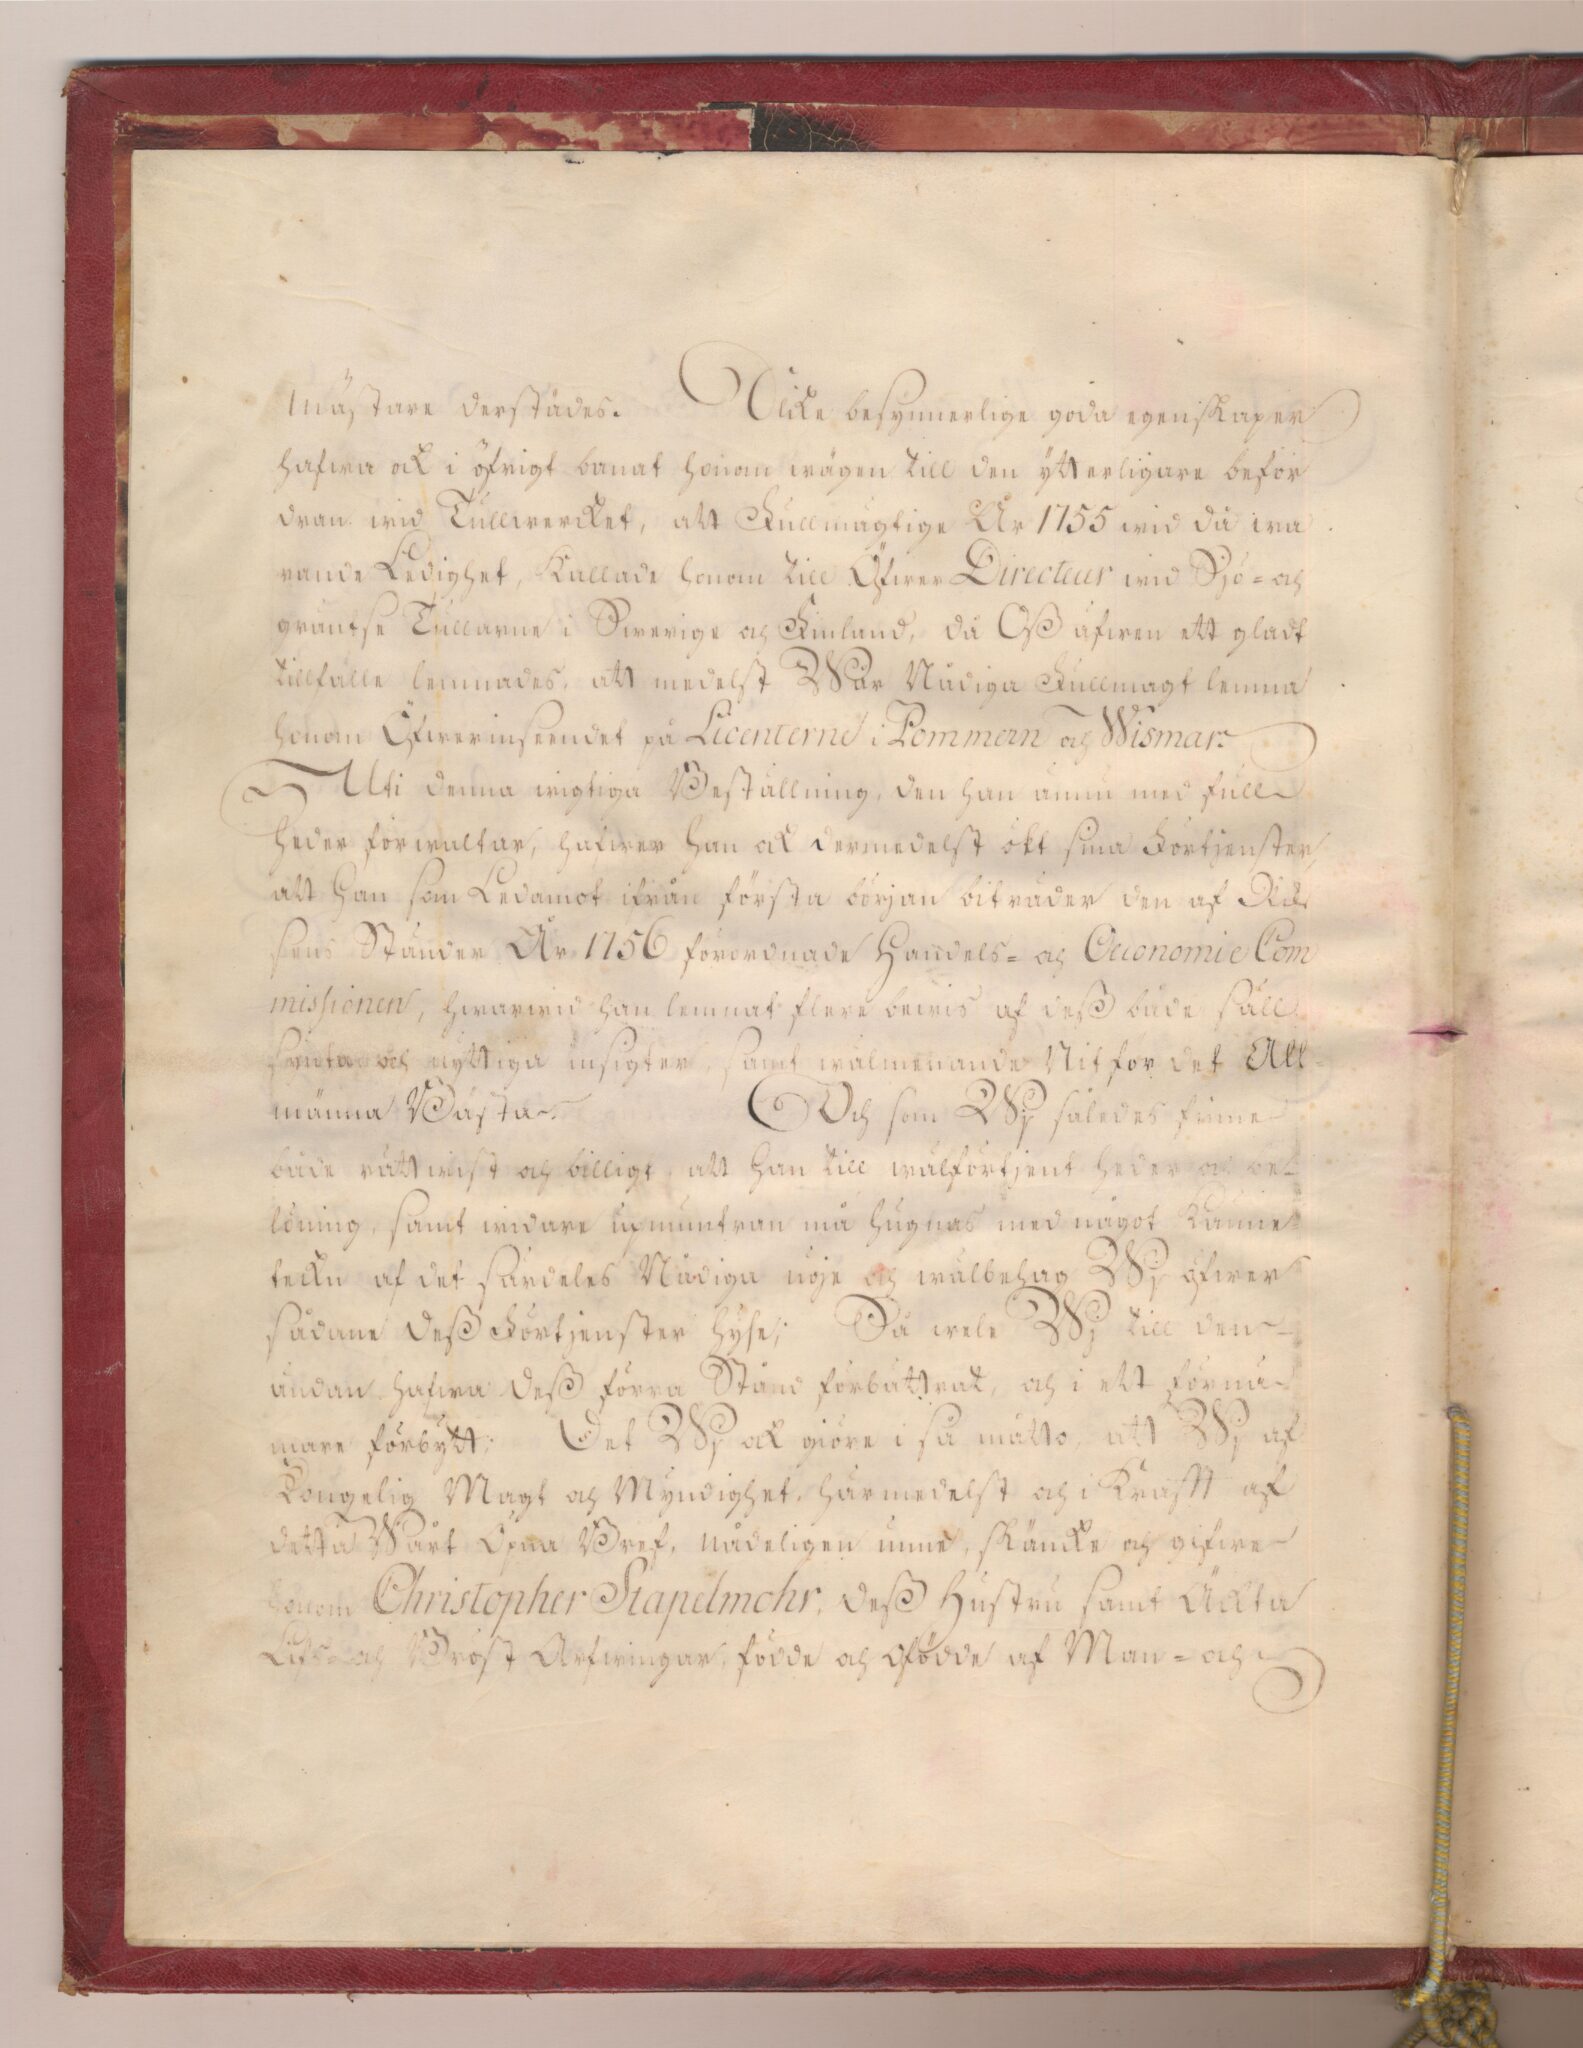 Mästare derstädes. Slike besynnerlige goda egenskaper
hafwa ock i öfrigt banat honom wägen till den ytterligare befor
dran wid Tullwercket, att Fullmägtige År 1755 wid då wa
rande Ledighet, kallade honom till Öfwer Directeur wid Sjö- och
gräntse Tullarne i Swerige och Finland, då Oß äfwen ett gladt
tillfälle lemnades, att medelst Wår Nådiga Fullmagt lemna
honom Öfwerinseendet på Licenterne i Pommern och Wismar.
Uti denna wigtiga Beställning, den han ännu med full
heder förwaltar, hafwer han ock dermedelst ökt sina Förtjenster,
att han som Ledamot ifrån första början biträder den af Rik
sens Ständer År 1756 förordnade Handels- och Oeconomie Com
missionen, hwarwid han lemnat flere bewis af deß både säll
synta och nyttiga insigter, samt wälmenande Nit för det All-
männa Bästa. Och som Wj således finne
både rättwist och billigt, att han till wälförtjent heder och be-
löning, samt widare upmuntran må hugnas med något Känne
teckn af det särdeles Nådiga nöje och wälbehag Wj öfwer
sådane deß Förtjenster hyse; Då wele Wj till den
ändan hafwa deß förra Stånd förbättrat, och i ett förnä-
mare förbytt; Det Wj ock giöre i så måtto, att Wj af
Kongelig Magt och Myndighet, härmedelst och i Krafft af
detta Wårt Öpna Bref, nådeligen unne, skäncke och gifwe
honom Christopher Stapelmohr, deß Hustru samt Äckta
Lifs- och Bröst Arfwingar, födde och ofödde af Man- och